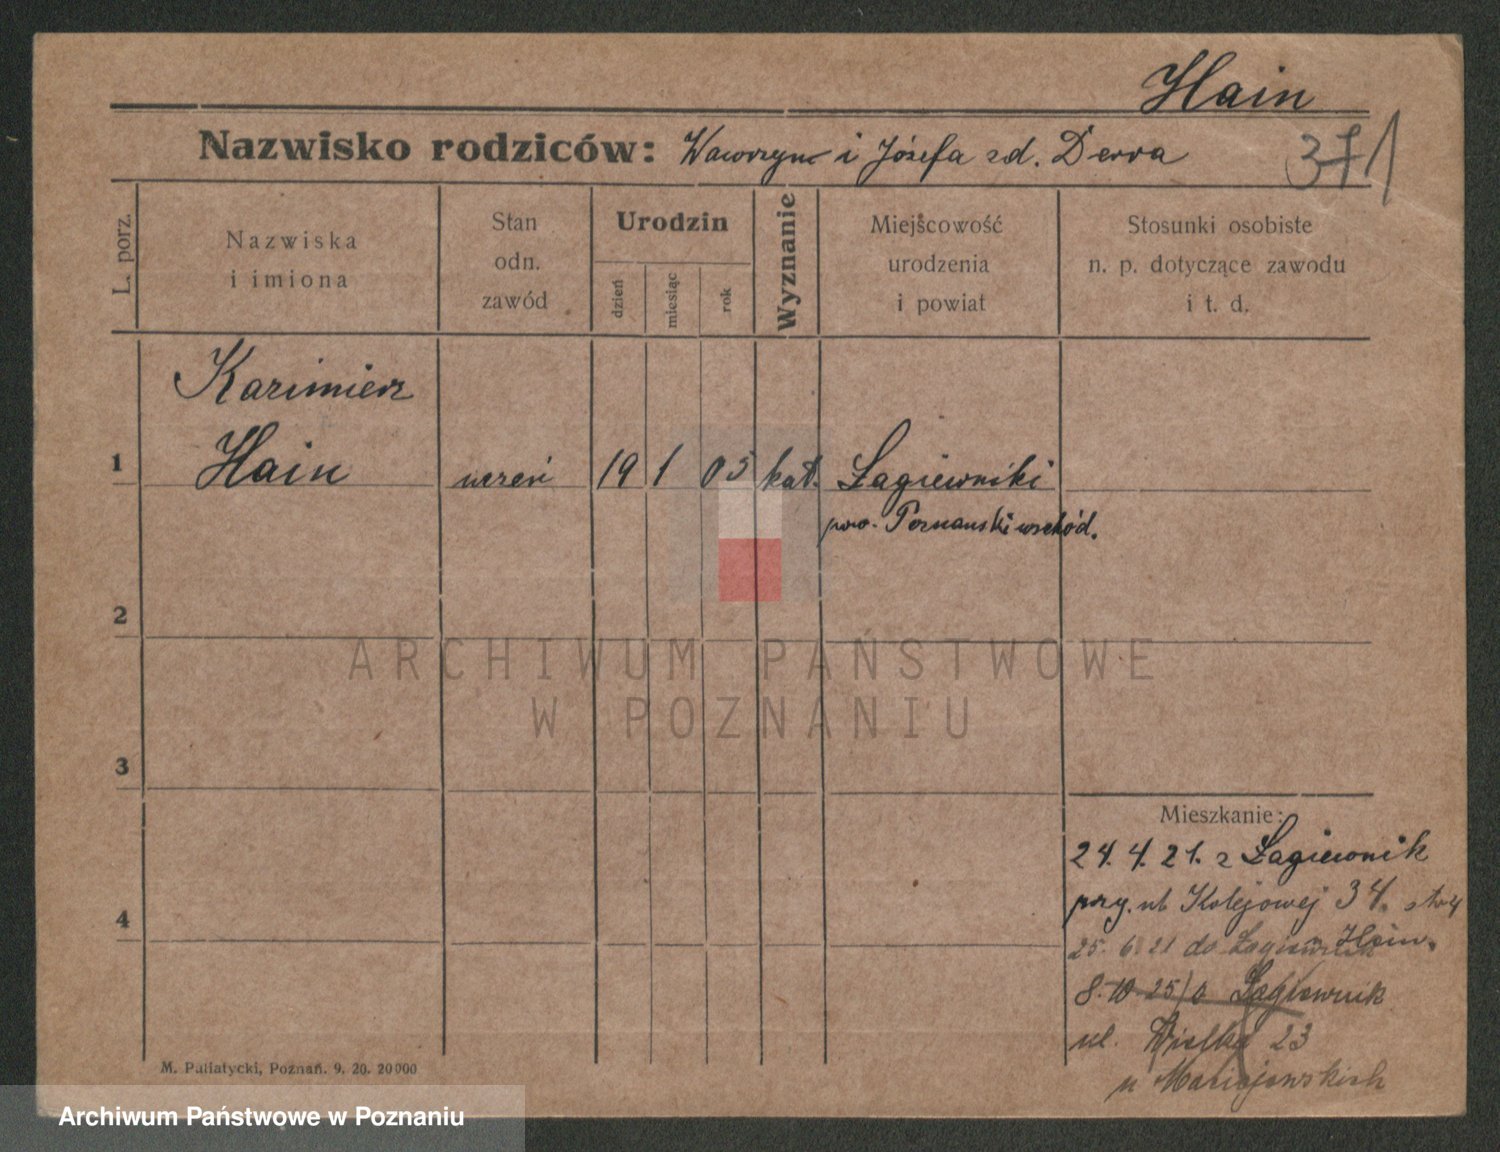 Hain
Nazwisko rodziców: Wawrzyn i Józefa zd. Derra
371
L. porz.
Nazwiska
i imiona
Stan
odn.
zawód
Urodzin
dzień
miesiąc
rok
Wyznanie
Miejscowość
urodzenia
i powiat
Stosunki osobiste
n. p. dotyczące zawodu
i t. d.
Kazimierz
1 Hain uczeń 19 1 05 kat. Łagiewniki
pow. Poznański wschód.
2
ARCHIWUM PAŃSTWOWE
W POZNANIU
3
Mieszkanie:
24. 4. 21. z Łagiewnik
przy. ul Kolejowej 34.
4
25. 6. 21 do Łagiewnik Hain.
8. 10. 25 Łagiewnik
ul. Wielka 23
u Maciejewskich
M. Paliatycki, Poznań. 9. 20. 20000
Archiwum Państwowe w Poznaniu